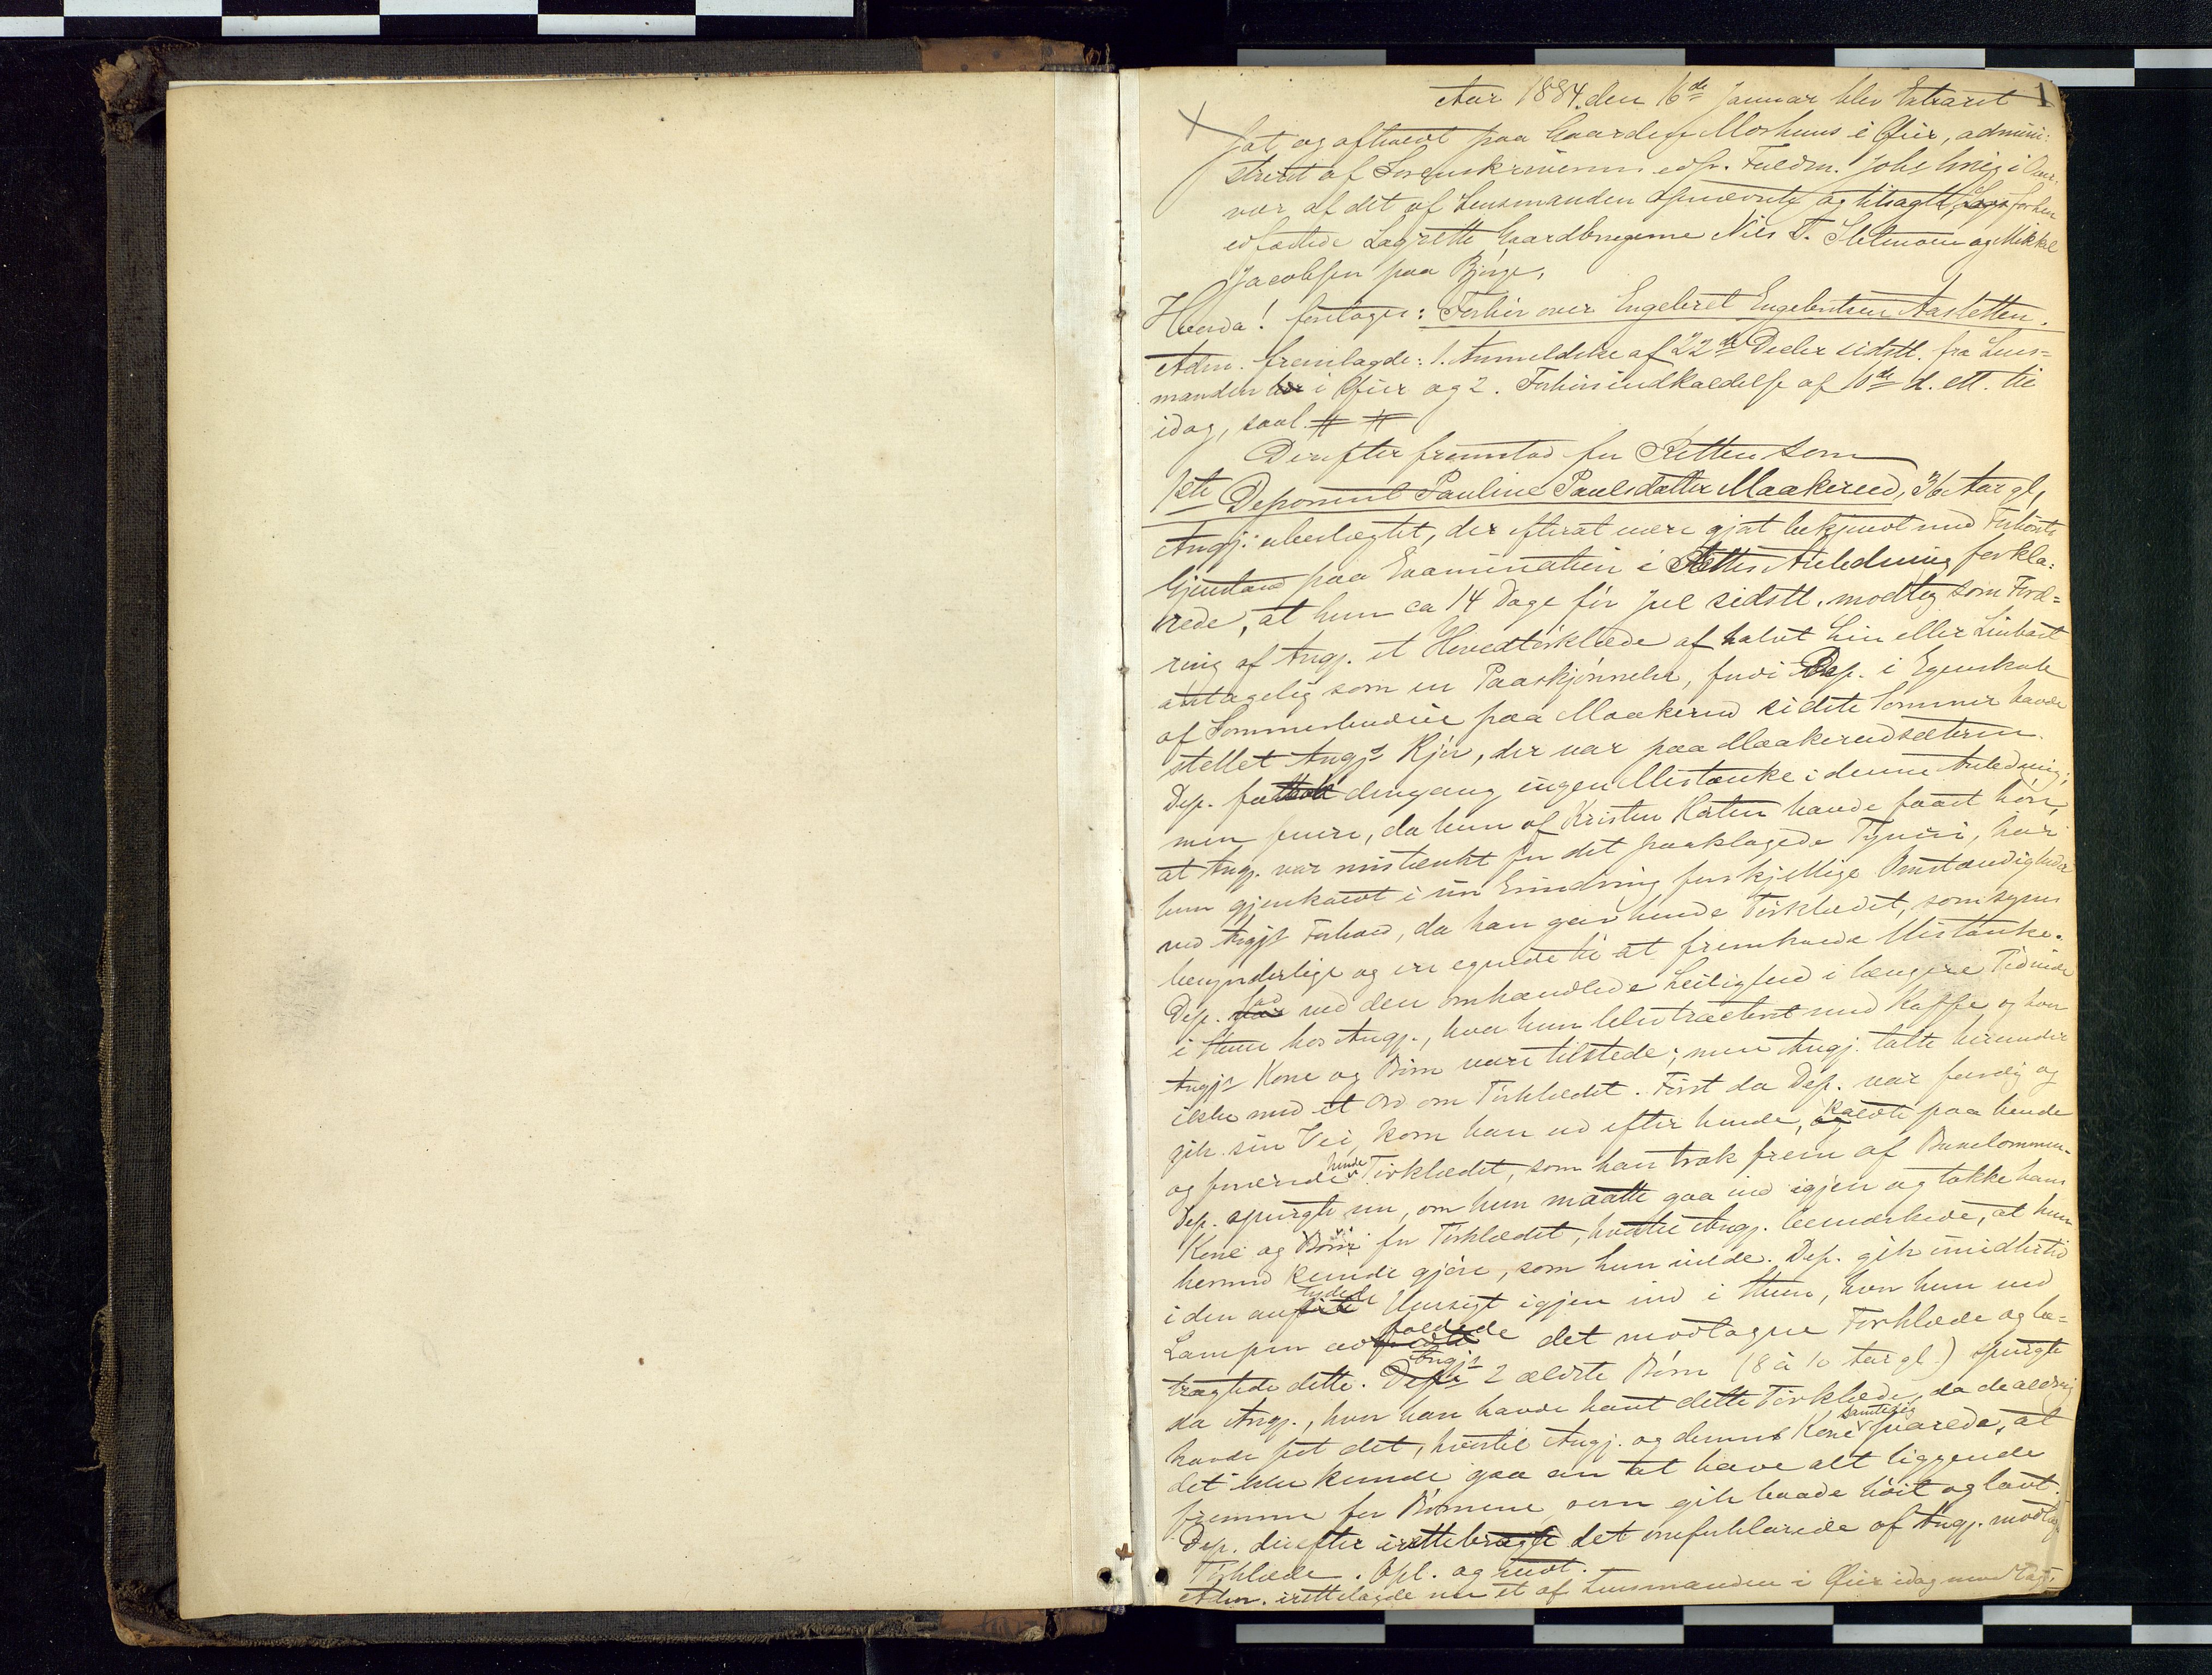 1
Aar 1884 den 16de Januar blev Extraret
sat og afholdt paa Gaarden Moshuus i Øier, admini-
streret af Sorenskriverens edsv. Fuldm. Johs
vær af det af Lensmanden opnævnte og tilsagte, forhen
edfæstede Lagrette Gaardbrugerne Nils T. Stetmoen og Mikkel
Jacobsen paa Bjørge,
Hvorda! foretoges: Forhør over Engebret Engebretsen Aasletten.
Adm. fremlagde: 1. Anmeldelse af 22de Decbr sidstl. fra Lens-
manden i Øier og 2. Forhørsindkaldelse af 10de d. ett. til
idag, saal. # #
Derefter fremstod for Retten som
1ste Deponent Pauline Paulsdatter Maakerud, 36 Aar gl,
Angj: ubeslægtet, der efterat være gjort bekjendt med Forhørets
Gjenstand paa Examination i Rettes Anledning forkla-
rede, at hun ca 14 Dage før Jul sidstl. modtog som Foræ-
ring af Angj. et Hovedtørklæde af halvt Lin eller Linbast
antagelig som en Paaskjønnelse, fordi Dep. i Egenskab
af Sommerbudeie paa Maakerud sidste Sommer havde
stellet Angjs Kjør, der var paa Maakerudsæteren.
Dep. fattede dengang ingen Mistanke i denne Anledning;
men senere, da hun af Kristen Raten havde faaet høre,
at Angj. var mistænkt for det paaklagede Tyveri, har
hun gjenkaldt i sin Erindring forskjellige Omstændigheder
ved Angjs Forhold, da han gav hende Tørklædet, som synes
besynderlige og er egnede til at fremkalde Mistanke.
Dep. sad ved den omhandlede Leilighed i længere Tid inde
i Stuen hos Angj., hvor hun blev tracteret med Kaffe og hvor
Angjs Kone og Børn vare tilstede; men Angj. talte herunder
ikke med et Ord om Tørklædet. Først da Dep. var færdig og
gik sin Vei, kom han ud efter hende, kaldte paa hende
og forærede hende Tørklædet, som han trak frem af Buxelommen.
Dep. spurgte nu, om hun maatte gaa ind igjen og takke hans
Kone og Børn for Tørklædet, hvortil Angj. bemærkede, at hun
hermed kunde gjøre, som hun vilde. Dep. gik imidlertid
i den antydede Hensigt igjen ind i Stuen, hvor hun ved
Lampen udfoldede det modtagne Tørklæde og be-
tragtede dette. Angjs 2 ældste Børn (8 à 10 Aar gl.) spurgte
da Angj., hvor han havde havt dette Tørklæde, da de aldrig
havde set det, hvortil Angj. og dennes Kone samtidig svarede, at
det ikke kunde gaa an at have alt liggende
fremme for Børnene, som gik baade høit og lavt.
Dep. derefter irettebragte det omforklarede af Angj. modtag.
Tørklæde. Opl. og vedt.
Adm. irettelagde nu et af Lensmanden i Øier idag modtaget